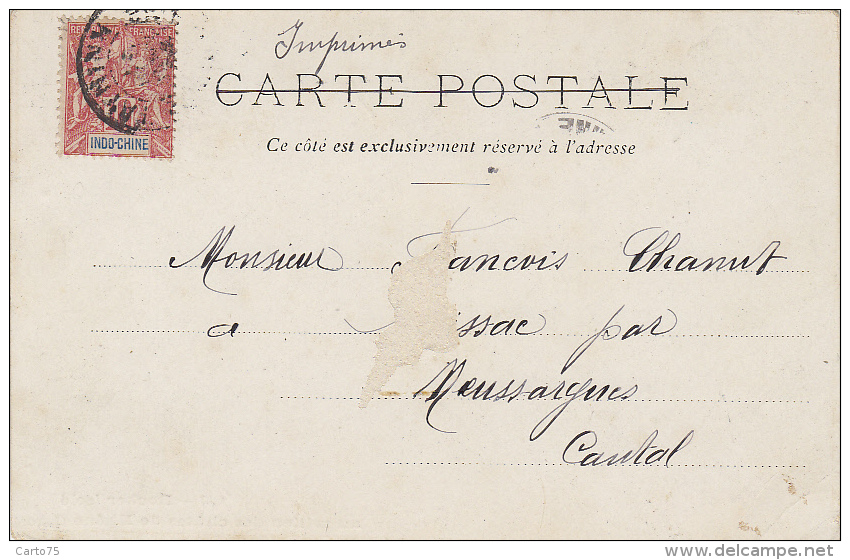 Imprimés
REPUBLIQUE FRANÇAISE
INDO-CHINE
CARTE POSTALE
Ce côté est exclusivement réservé à l'adresse
Monsieur Francois Chanut
a issac par
Neussargues
Cantal
Carto75
www.delcampe.net